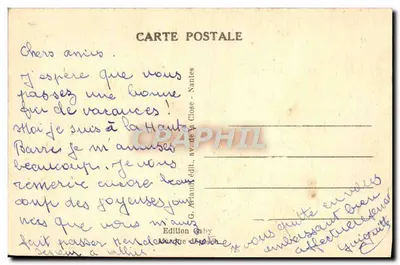 CARTE POSTALE
Chers amis.
J'espère que vous
passez une bonne
fin de vacances!
Moi je suis à la Haute
Barrie je m'amuse
beaucoup. Je vous
remercie encore beau
coup des joyeuses jour
nées que vous m'avez
fait passer pendant votre
séjour à
vous quitte en vous
embrassant bien
affectueusement
G. Artaud, édit., av. de la Close - Nantes
Edition Gaby
CPARPHIL